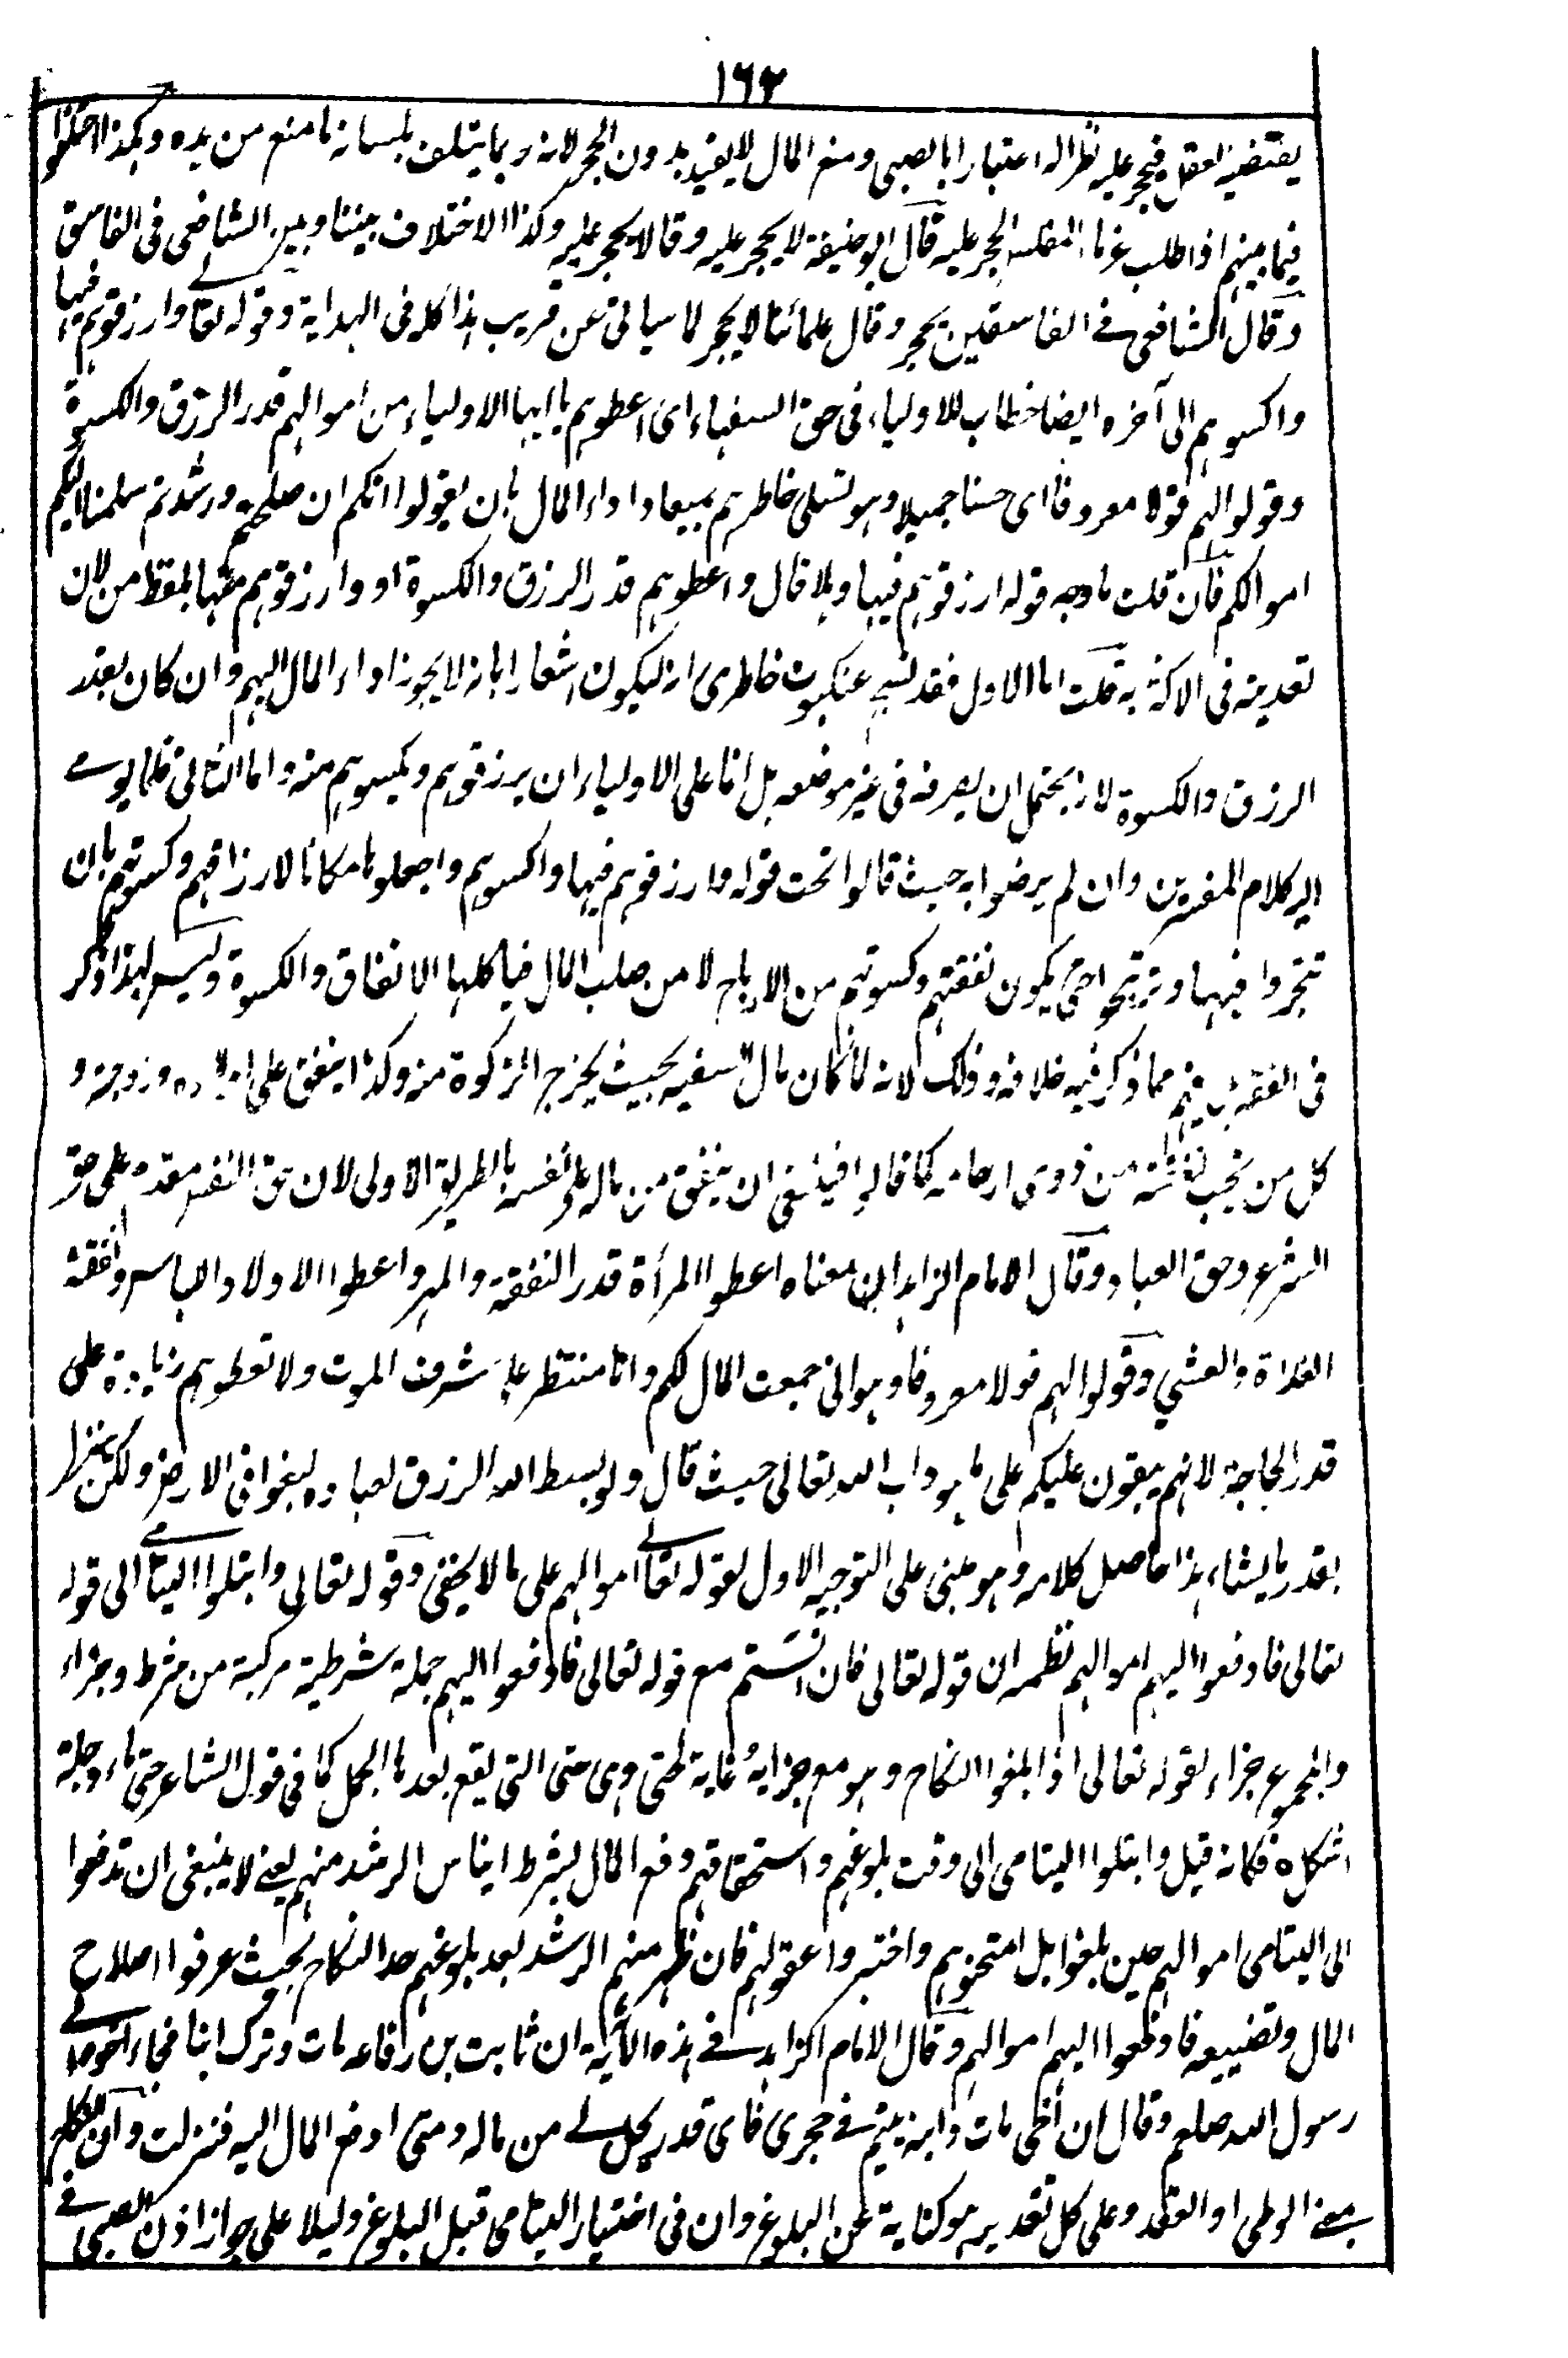 ١٦٢
يقتضيه لعقله فيحجر عليه نظرا له اعتبارا بالصبي ومنع المال لا يفيد بدون الحجر لانه ربما يتلف بلسانه ما منع من يده وهكذا اختلفوا
فيما بينهم اذا طلب غرماء المفلس الحجر عليه قال ابو حنيفة لا يحجر عليه وقالا يحجر عليه وكذا الاختلاف بيننا وبين الشافعي في الفاسق
وقال الشافعي في الفاسقين يحجر وقال علمائنا لا يحجر لما سياتى عن قريب هذا كله في الهداية وقوله تعالى وارزقوهم فيها
واكسوهم الى آخره ايضا خطاب للاولياء في حق السفهاء اى اعطوهم يا ايها الاولياء من اموالهم قدر الرزق والكسوة
وقولوا لهم قولا معروفا اى حسنا جميلا وهو تسلى خاطرهم بميعاد اداء المال بان يقولوا انكم ان صلحتم ورشدتم سلمنا اليكم
اموالكم فان قلت ما وجه قوله ارزقوهم فيها وهلا قال واعطوهم قدر الرزق والكسوة او وارزقوهم منها بلفظ من لان
تعديته في الاكثر به قلت اما الاول فقد نسج عنكبوت خاطرى انه ليكون اشعارا بانه لا يجوز اداء المال اليهم وان كان بقدر
الرزق والكسوة لانه يحتمل ان يصرفه في غير موضعه بل انما على الاولياء ان يرزقوهم ويكسوهم منه واما الثانى فلما يومى
اليه كلام المفسرين وان لم يرضوا به حيث قالوا تحت قوله وارزقوهم فيها واكسوهم واجعلوها مكانا لارزاقهم وكسوتهم بان
تتجروا فيها وتربحوا حتى يكون نفقتهم وكسوتهم من الارباح لا من صلب المال فياكلها الانفاق والكسوة وليس لهذا ذكر
في الفقه بل فيهم مما ذكر فيه خلافه وذلك لانه لما كان مال السفيه بحيث يخرج الزكوة منه وكذا ينفق على اولاده وزوجته و
كل من يجب نفقته من ذوى ارحامه كما قالوا فينبغى ان ينفق من ماله على نفسه بالطريق الاولى لان حق النفس مقدم على حق
الشرع وحق العباد وقال الامام الزاهد ان معناه اعطوا المرأة قدر النفقة والمهر واعطوا الاولاد اللباس ونفقة
الغداة والعشي وقولوا لهم قولا معروفا وهو انى جمعت المال لكم وانا منتظر على شرف الموت ولا تعطوهم زيادة على
قدر الحاجة لانهم يبقون عليكم على ما هو داب الله تعالى حيث قال ولو بسط الله الرزق لعباده لبغوا في الارض ولكن ينزل
بقدر ما يشاء هذا حاصل كلامه وهو مبنى على التوجيه الاول لقوله تعالى اموالهم على ما لا يخفى وقوله تعالى وابتلوا اليتامى الى قوله
تعالى فادفعوا اليهم اموالهم نظمه ان قوله تعالى فان آنستم مع قوله تعالى فادفعوا اليهم جملة شرطية مركبة من شرط وجزاء
والمجموع جزاء لقوله تعالى اذا بلغوا النكاح وهو مع جزايه غاية لحتى وهى حتى التى يقع بعدها الجمل كما في قول الشاعر حتى ماء دجلة
اشكل ه فكانه قيل وابتلوا اليتامى الى وقت بلوغهم واستحقاقهم دفع المال بشرط ايناس الرشد منهم يعنى لا ينبغى ان تدفعوا
الى اليتامى اموالهم حين بلغوا بل امتحنوهم واختبروا عقولهم فان ظهر منهم الرشد بعد بلوغهم حد النكاح بحيث عرفوا اصلاح
المال وتضييعه فادفعوا اليهم اموالهم وقال الامام الزاهد في هذه الآية ان ثابت بن رفاعه مات وترك ابنا فجاء اخوه الى
رسول الله صلعم وقال ان اخى مات وابنه يتيم في حجرى فاى قدر يحل لى من ماله ومتى ادفع المال اليه فنزلت وان النكاح
بمعنى الوطى او العقد وعلى كل تقدير هو كناية عن البلوغ وان في اختبار اليتامى قبل البلوغ دليلا على جواز اذن الصبى في